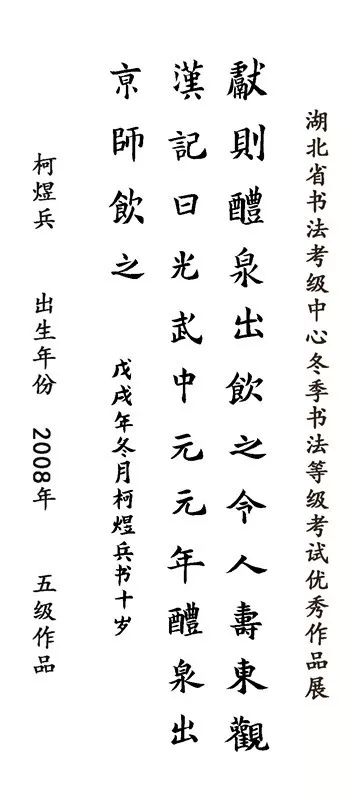 湖北省书法考级中心冬季书法等级考试优秀作品展
獻則醴泉出飲之令人壽東觀
漢記曰光武中元元年醴泉出
京師飲之
戊戌年冬月柯煜兵书十岁
柯煜兵 出生年份 2008年 五级作品